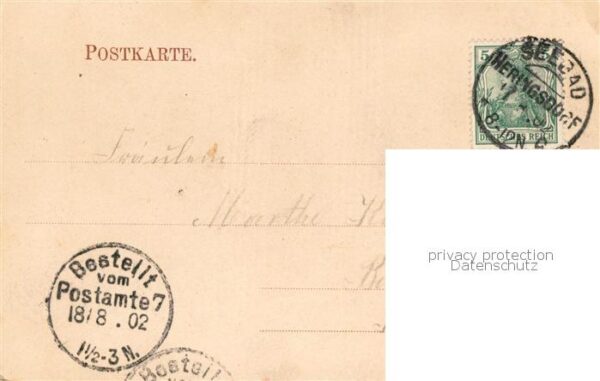 POSTKARTE.
5
DEUTSCHES REICH
SEEBAD
HERINGSDORF
8-10N
Fräulein
Marthe K
privacy protection
Datenschutz
Bestellt
vom
Postamte 7
18/8.02
1½-3 N.
Bestellt